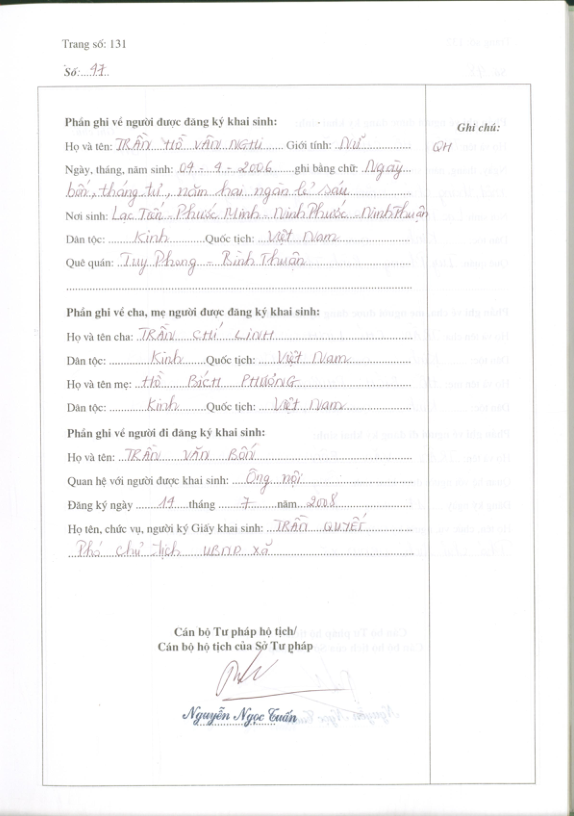 Trang số: 131
Số: 97
Phần ghi về người được đăng ký khai sinh:
Họ và tên: TRẦN HỒ VÂN NGHI Giới tính: Nữ
Ngày, tháng, năm sinh: 04 - 4 - 2006 ghi bằng chữ: Ngày
bốn, tháng tư, năm hai ngàn lẻ sáu
Nơi sinh: Lạc Tiến - Phước Minh - Ninh Phước - Ninh Thuận
Dân tộc: Kinh Quốc tịch: Việt Nam
Quê quán: Tuy Phong - Bình Thuận
Phần ghi về cha, mẹ người được đăng ký khai sinh:
Họ và tên cha: TRẦN CHÍ LINH
Dân tộc: Kinh Quốc tịch: Việt Nam
Họ và tên mẹ: HỒ BÍCH PHƯỢNG
Dân tộc: Kinh Quốc tịch: Việt Nam
Phần ghi về người đi đăng ký khai sinh:
Họ và tên: TRẦN VĂN BỐN
Quan hệ với người được khai sinh: Ông nội
Đăng ký ngày 19 tháng 7 năm 2008
Họ tên, chức vụ, người ký Giấy khai sinh: TRẦN QUYẾT
Phó chủ tịch UBND xã
Cán bộ Tư pháp hộ tịch/
Cán bộ hộ tịch của Sở Tư pháp
Nguyễn Ngọc Tuấn
Ghi chú:
QH